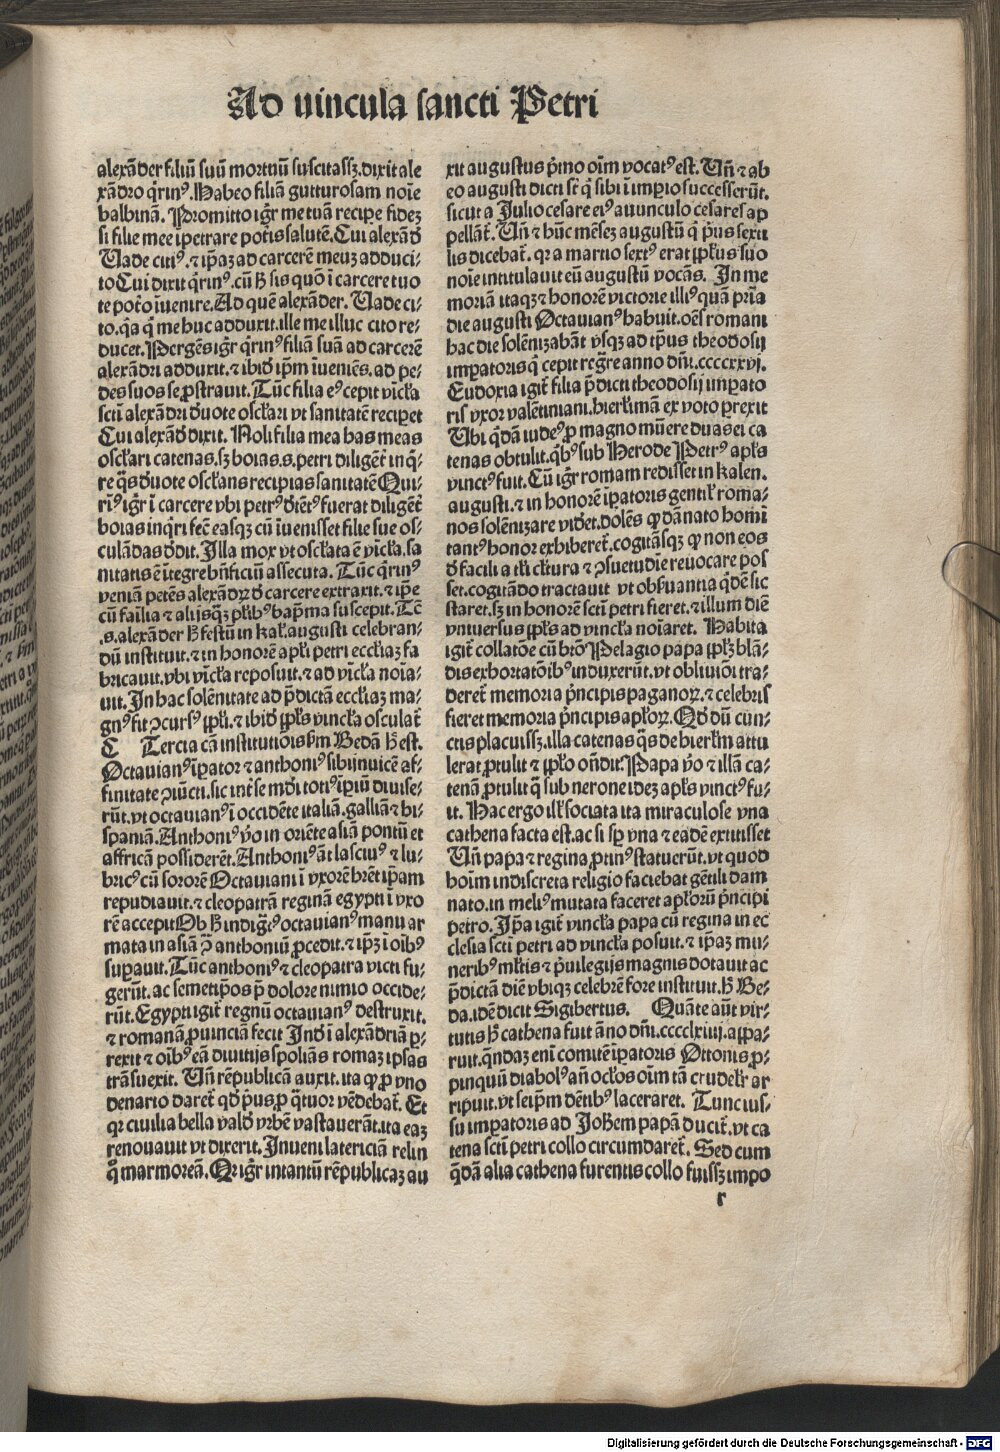 Ad vincula sancti Petri
alexãder filiũ suũ mortuũ suscitassꝫ. dixit ale
xãdro q̃rinꝰ. Habeo filiã gutturosam noĩe
balbinã. Promitto igr̃ me tuã recipe fideꝫ
si filie mee ĩpetrare potis salutẽ. Cui alexãđ
Uade citiꝰ. ⁊ ip̃aꝫ ad carcerẽ meuꝫ adduci-
to Cui dixit q̃rinꝰ. cũ ħ sis quõ ĩ carcere tuo
te potõ ĩuenire. Ad quẽ alexãder. Uade ci-
to. q̃a q̃ me huc adduxit. ille me illuc cito re-
ducet. Pergẽs igr̃ q̃rinꝰ filiã suã ad carcerẽ
alexãdri adduxit. ⁊ ibiđ ip̃m ĩueniẽs. ad pe-
des suos se ꝓstrauit. Tũc filia eꝰ cepit vĩcła
scti alexãdri đuote oscłari vt sanitatẽ recipet
Cui alexãđ dixit. Noli filia mea has meas
oscłari catenas. sꝫ boias .s. petri diligẽt̃ inq̃-
re q̃s đuote oscłans recipias sanitatẽ Qui-
rĩꝰ igr̃ ĩ carcere vbi petrꝰ đtẽtꝰ fuerat diligẽt̃
boias inq̃ri fec̃ easqꝫ cũ ĩuenisset filie sue os-
culãdas đdit. Illa mox vt oscłata ẽ vĩcła. sa
nitatis ẽ ĩtegre bñficiũ assecuta. Tũc q̃rinꝰ
veniã petẽs alexãdrꝫ đ carcere extraxit. ⁊ ip̃e
cũ fam̃ilia ⁊ alijsqꝫ płibꝰ bap̃ma suscepit. Tc̃
.s. alexãder ħ festũ in kał. augusti celebran-
dũ instituit. ⁊ in honorẽ apłi petri eccłiaꝫ fa
bricauit. vbi vĩcła reposuit. ⁊ ad vĩcła noĩa-
uit. In hac solẽnitate ad p̃dictã eccłiaꝫ ma-
gnꝰ fit ↄcursꝰ ppłi. ⁊ ibiđ ppłs vincła osculat̃
C Tercia cã institutiõis ẜm Bedã ħ est.
Octauianꝰ ĩpator ⁊ anthoniꝰ sibijnuicẽ af-
finitate ↄiũcti. sic int̃ se mđi totiꝰ ĩpiũ diuise-
rũt. vt octauianꝰ ĩ occidẽte italiã. galliã ⁊ hi-
spaniã. Anthoniꝰ ṽo in oriẽte asiã pontũ et
affricã possiderẽt. Anthoniꝰ ãt lasciuꝰ ⁊ lu-
bricꝰ cũ sororẽ Octauiani ĩ vxorẽ hr̃et ip̃am
repudiauit. ⁊ cleopatrã reginã egypti ĩ vxo
rẽ accepit Ob ħ indigt̃ꝰ octauianꝰ manu ar
mata in asiã ↄ̃ anthoniũ ꝓcedit. ⁊ ip̃ꝫ ĩ oĩbꝰ
supauit. Tũc anthoniꝰ ⁊ cleopatra victi fu-
gerũt. ac semetip̃os p̃ dolore nimio occide-
rũt. Egypti igit̃ regnũ octauianꝰ destruxit.
⁊ romanã ꝓuinciã fecit Inđ ĩ alexãdriã ꝑ-
rexit ⁊ oĩbꝰ eã diuitijs spoliãs romaꝫ ipsas
trãsuexit. Uñ rẽpublicã auxit. ita ꝙ ꝓ vno
denario daret̃ qđ p̃us ꝓ q̃tuor vẽdebat̃. Et
qꝛ ciuilia bella valđ vrbẽ vastauerãt. ita eaꝫ
renouauit vt dixerit. Inueni latericiã relin
q̃ marmoreã. Qꝛ igr̃ intantũ rẽpublicaꝫ au
xit augustus p̃mo oĩm vocatꝰ est. Uñ ⁊ ab
eo augusti dicti sr̃t q̃ sibi ĩ impio successerũt.
sicut a Julio cesare eiꝰ auunculo cesares ap
pellãt̃. Uñ ⁊ hũc mẽseꝫ augustũ q̃ p̃us sexti
lis dicebat̃. qꝛ a martio sextꝰ erat ppłus suo
noĩe intitulauit eũ augustũ vocãs. In me
moriã itaqꝫ ⁊ honorẽ victorie illiꝰ quã pr̃ia
die augusti Octauianꝰ habuit. oẽs romani
hac die solẽnizabãt vsqꝫ ad tp̃us theodosij
impatoris q̃ cepit reg̃re anno dñi. ccccxxvj.
Eudoxia igit̃ filia p̃dicti theodosij impato
ris vxor valẽtiniani. hierłimã ex voto ꝑrexit
Ubi q̃dã iudeꝰ ꝓ magno mũere duas ei ca
tenas obtulit. q̃bꝰ sub Herode Petrꝰ apłs
vinctꝰ fuit. Cũ igr̃ romam redisset in kalen.
augusti. ⁊ in honorẽ ĩpatoris gentił roma-
nos solẽnizare viđet. dolẽs ꝙ dãnato homĩ
tantꝰ honor exhiberet̃. cogitãsqꝫ ꝙ non eos
đ facili a tłi cłtura ⁊ ↄsuetudie reuocare pos
set. cogitãdo tractauit vt obẜuantia q̃dẽ sic
staret. sꝫ in honorẽ scti petri fieret. ⁊ illum diẽ
vniuersus ppłs ad vincła noĩaret. Habita
igit̃ collatõe cũ btõ Pelagio papa ppłꝫ blã-
dis exhortatõibꝰ induxerũt. vt obliuiõi tra-
deret̃ memoria p̃ncipis paganoꝝ. ⁊ celebris
fieret memoria p̃ncipis apłoꝝ. Qđ dũ cun-
ctis placuissꝫ. illa catenas q̃s de hierłm attu
lerat ꝓtulit ⁊ ppło oñdit. Papa ṽo ⁊ illã ca-
tenã ꝓtulit q̃ sub nerone ideꝫ apłs vinctꝰ fu-
it. Hac ergo ill̃ sociata ita miraculose vna
cathena facta est. ac si sp̃ vna ⁊ eadẽ extitisset
Uñ papa ⁊ regina ꝓtinꝰ statuerũt. vt quod
hoĩm indiscreta religio faciebat gẽtili dam
nato. in meliꝰ mutata faceret apłorũ p̃ncipi
petro. Ip̃a igit̃ vincła papa cũ regina in ec
clesia scti petri ad vincła posuit. ⁊ ip̃aꝫ mu-
neribꝰ młtis ⁊ p̃uilegijs magnis dotauit ac
p̃dictã diẽ vbiqꝫ celebrẽ fore instituit. ħ Be-
da. idẽ dicit Sigibertus. Quãte aũt vir-
tutis ħ cathena fuit ãno dñi. cccclxiiij. appa-
ruit. q̃ndaꝫ eni comitẽ ĩpatoris Ottonis ꝓ-
pinquũ diabolꝰ añ ocłos oĩm tã crudelr̃ ar
ripuit. vt seip̃m dẽtibꝰ laceraret. Tunc ius-
su impatoris ad Johẽm papã ducit̃. vt ca
tena scti petri collo circumdaret̃. Sed cum
q̃dã alia cathena furentis collo fuissꝫ impo
r
Digitalisierung gefördert durch die Deutsche Forschungsgemeinschaft - DFG